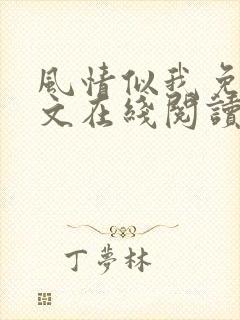 風情似我 免
文在綫閱讀
丁夢林